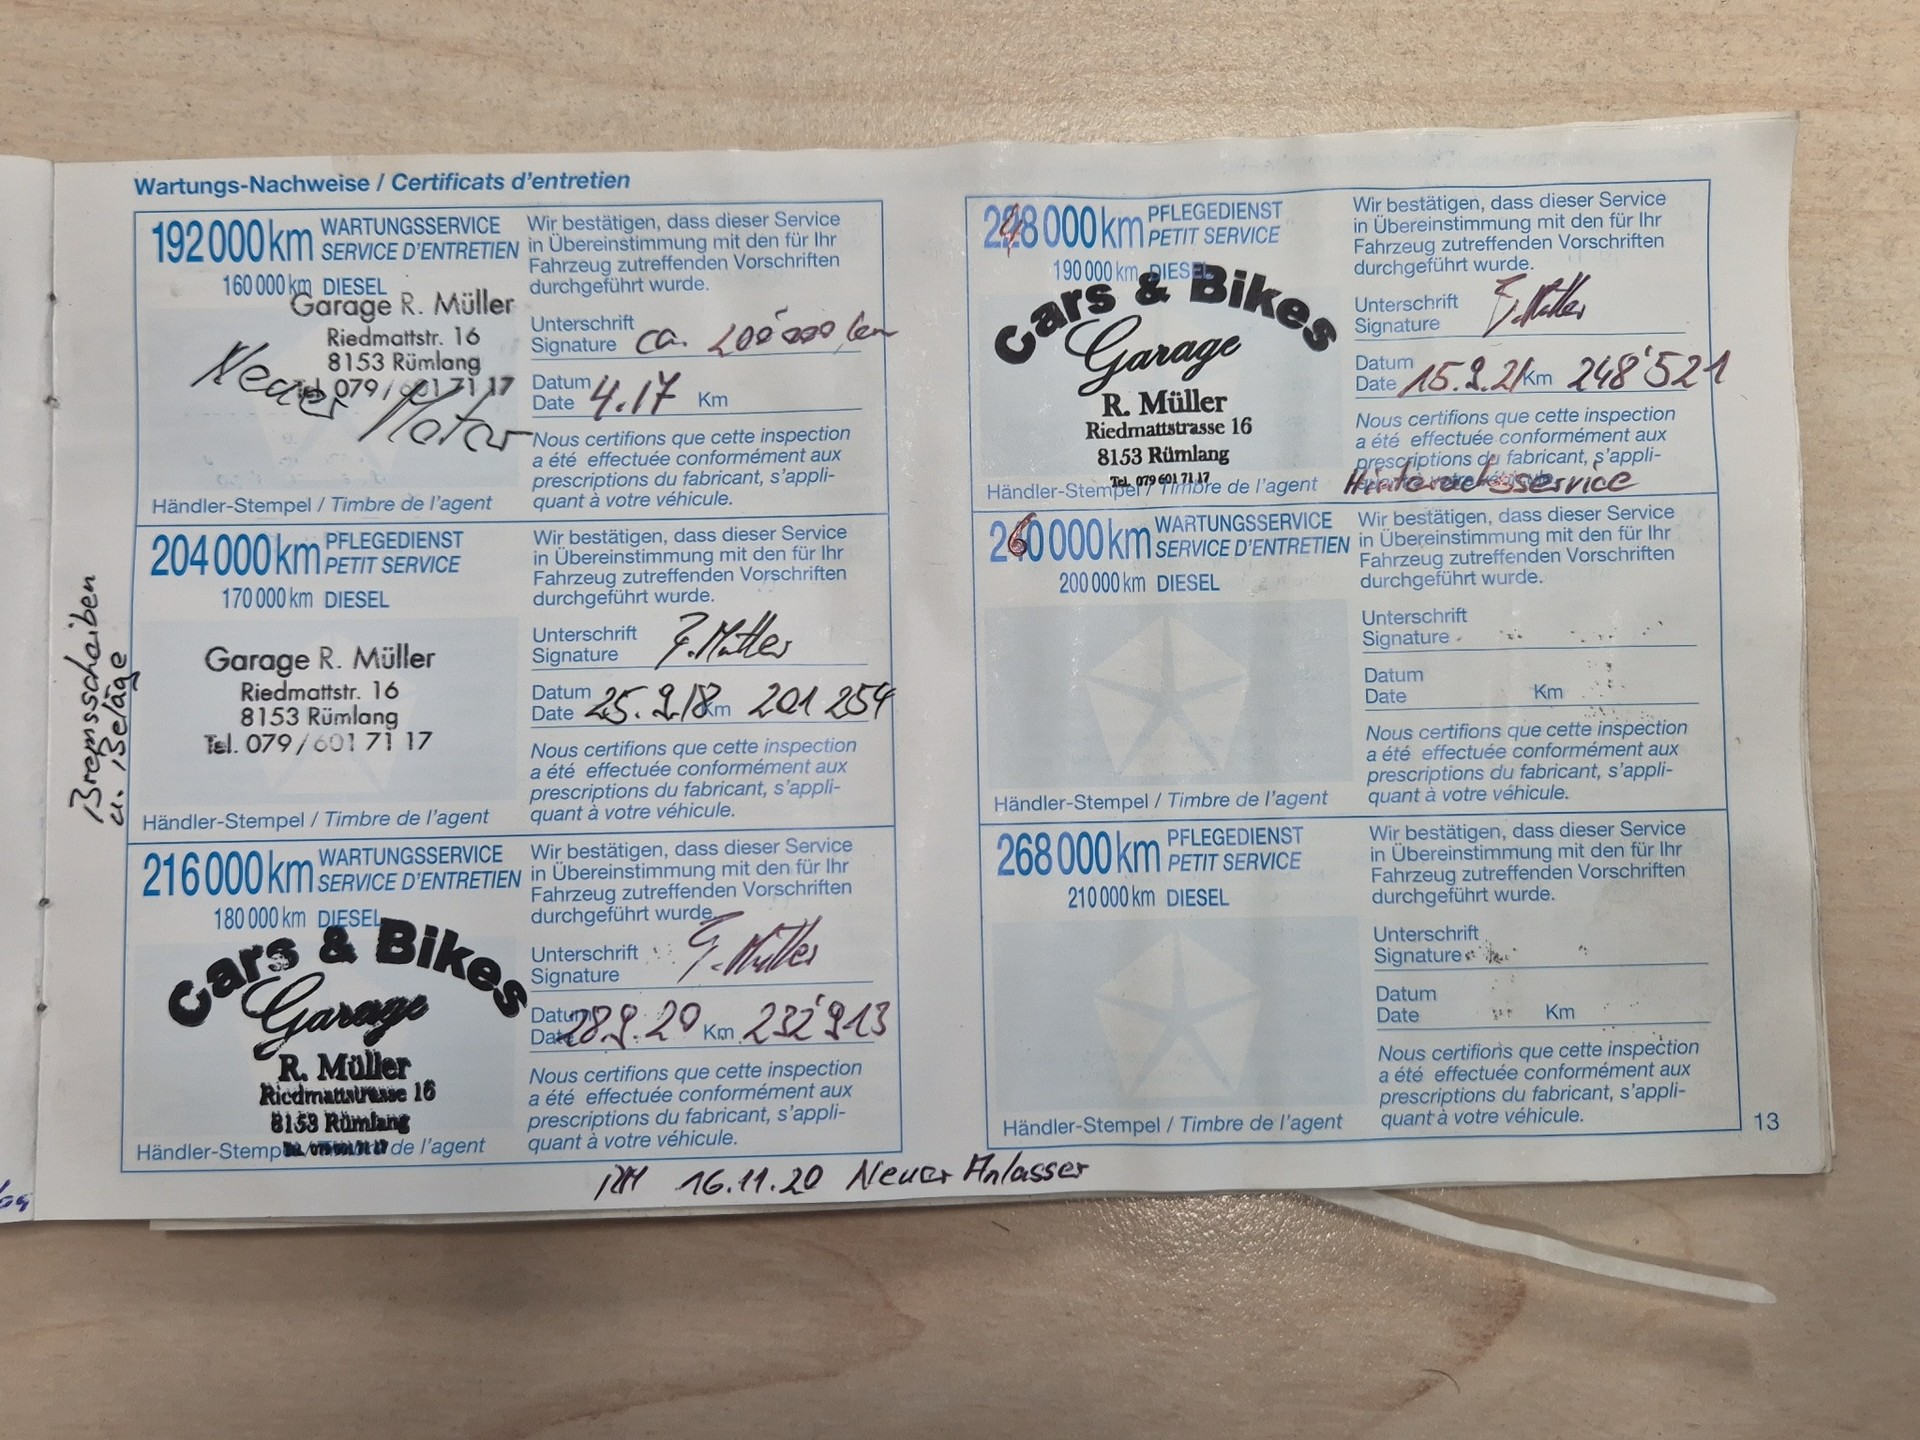 Wartungs-Nachweise / Certificats d'entretien
192 000 km WARTUNGSSERVICE
SERVICE D'ENTRETIEN
160 000 km DIESEL
Garage R. Müller
Riedmattstr. 16
8153 Rümlang
Tel. 079 / 601 71 17
Neuer Motor
Händler-Stempel / Timbre de l'agent
Wir bestätigen, dass dieser Service
in Übereinstimmung mit den für Ihr
Fahrzeug zutreffenden Vorschriften
durchgeführt wurde.
Unterschrift
Signature ca. 200'000 km
Datum
Date 4.17 Km
Nous certifions que cette inspection
a été effectuée conformément aux
prescriptions du fabricant, s'appli-
quant à votre véhicule.
Bremsscheiben
u. Beläge
204 000 km PFLEGEDIENST
PETIT SERVICE
170 000 km DIESEL
Garage R. Müller
Riedmattstr. 16
8153 Rümlang
Tel. 079 / 601 71 17
Händler-Stempel / Timbre de l'agent
Wir bestätigen, dass dieser Service
in Übereinstimmung mit den für Ihr
Fahrzeug zutreffenden Vorschriften
durchgeführt wurde.
Unterschrift
Signature
Datum
Date 25.9.18 Km 201 254
Nous certifions que cette inspection
a été effectuée conformément aux
prescriptions du fabricant, s'appli-
quant à votre véhicule.
216 000 km WARTUNGSSERVICE
SERVICE D'ENTRETIEN
180 000 km DIESEL
Cars & Bikes
Garage
R. Müller
Riedmattstrasse 16
8153 Rümlang
Händler-Stempel / Timbre de l'agent
Wir bestätigen, dass dieser Service
in Übereinstimmung mit den für Ihr
Fahrzeug zutreffenden Vorschriften
durchgeführt wurde.
Unterschrift
Signature
Datum
Date 28.9.20 Km 232'913
Nous certifions que cette inspection
a été effectuée conformément aux
prescriptions du fabricant, s'appli-
quant à votre véhicule.
RM 16.11.20 Neuer Anlasser
248 000 km PFLEGEDIENST
PETIT SERVICE
190 000 km DIESEL
Cars & Bikes
Garage
R. Müller
Riedmattstrasse 16
8153 Rümlang
Tel. 079 601 71 17
Händler-Stempel / Timbre de l'agent
Wir bestätigen, dass dieser Service
in Übereinstimmung mit den für Ihr
Fahrzeug zutreffenden Vorschriften
durchgeführt wurde.
Unterschrift
Signature
Datum
Date 15.9.21 Km 248'521
Nous certifions que cette inspection
a été effectuée conformément aux
prescriptions du fabricant, s'appli-
quant à votre véhicule.
Hinterachsservice
260 000 km WARTUNGSSERVICE
SERVICE D'ENTRETIEN
200 000 km DIESEL
Händler-Stempel / Timbre de l'agent
Wir bestätigen, dass dieser Service
in Übereinstimmung mit den für Ihr
Fahrzeug zutreffenden Vorschriften
durchgeführt wurde.
Unterschrift
Signature
Datum
Date Km
Nous certifions que cette inspection
a été effectuée conformément aux
prescriptions du fabricant, s'appli-
quant à votre véhicule.
268 000 km PFLEGEDIENST
PETIT SERVICE
210 000 km DIESEL
Händler-Stempel / Timbre de l'agent
Wir bestätigen, dass dieser Service
in Übereinstimmung mit den für Ihr
Fahrzeug zutreffenden Vorschriften
durchgeführt wurde.
Unterschrift
Signature
Datum
Date Km
Nous certifions que cette inspection
a été effectuée conformément aux
prescriptions du fabricant, s'appli-
quant à votre véhicule.
13